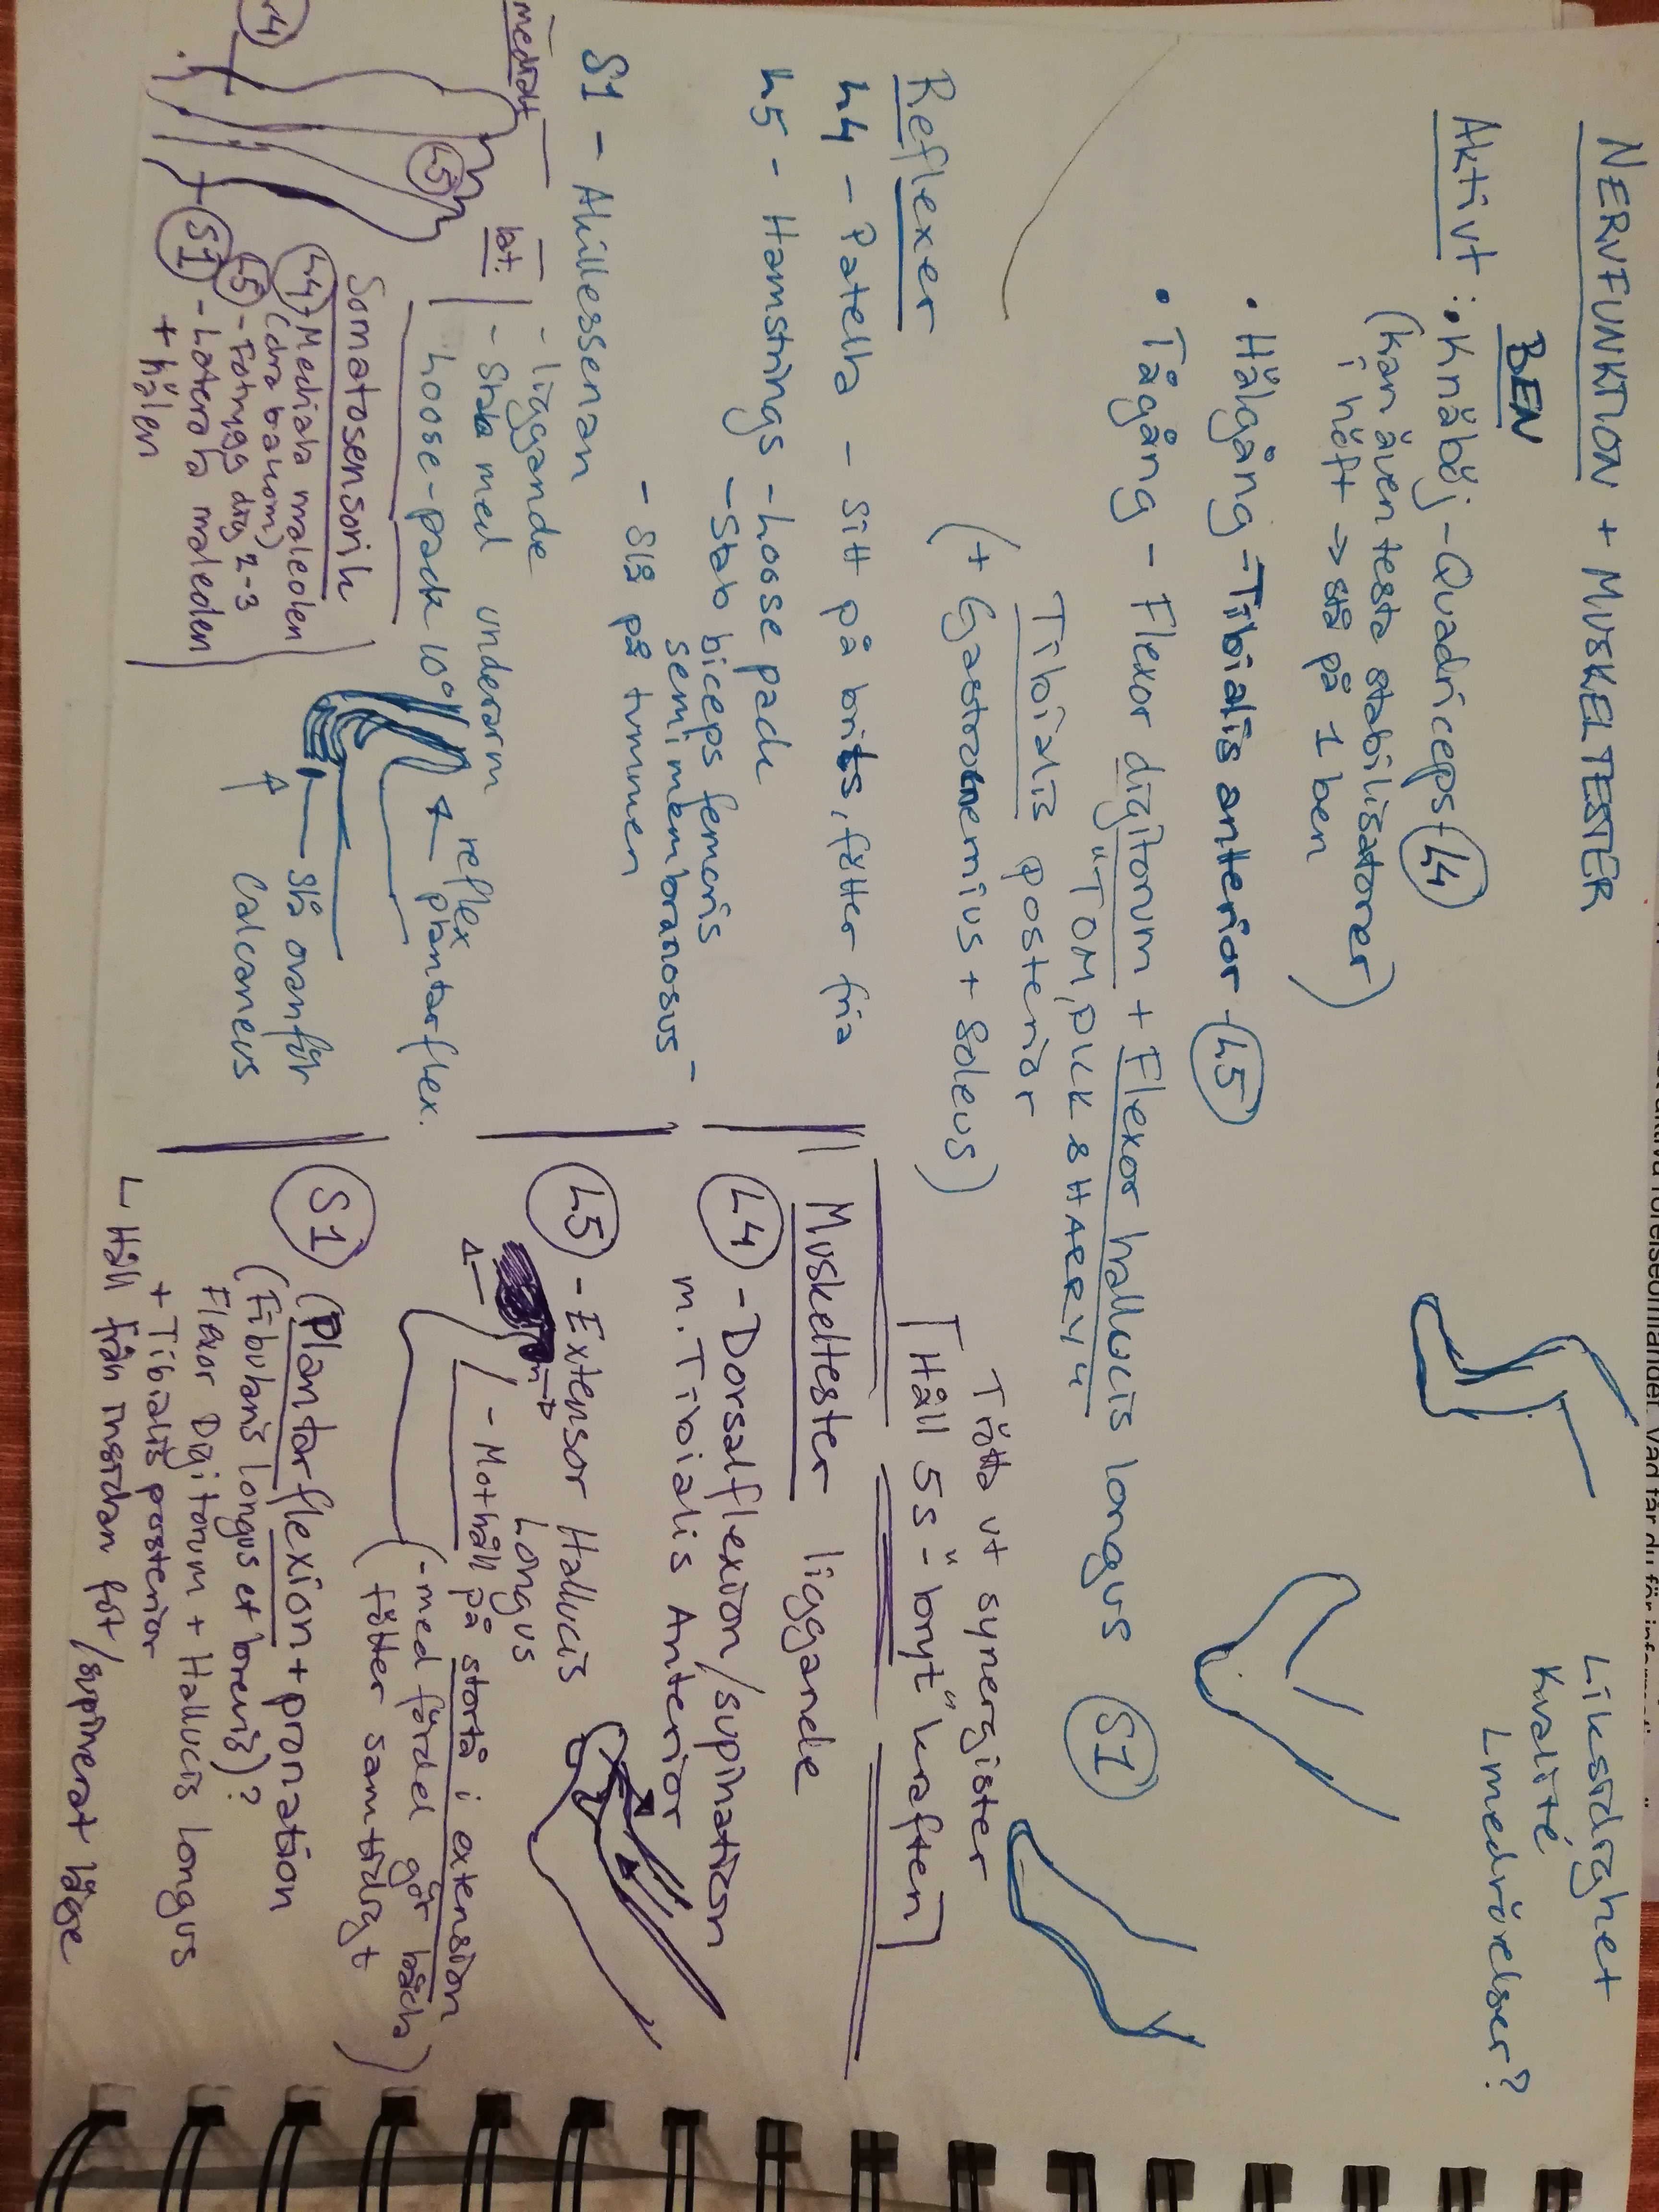 NERVFUNKTION + MUSKELTESTER
BEN
Liksidighet
Kvalité
Lmedrörelser?
Aktivt : • Knäböj - Quadriceps - L4
(kan även testa stabilisatorer)
i höft → stå på 1 ben
• Hälgång - Tibialis anterior - L5
• Tågång - Flexor digitorum + Flexor hallucis longus S1
"TOM, DICK & HARRY"
Tibialis posterior
(+ Gastrocnemius + Soleus)
Reflexer
L4 - Patella - sitt på brits, fötter fria
L5 - Hamstrings - Loose pack
- Stab biceps femoris
semimembranosus
- Slå på tummen
S1 - Akillessenan
- liggande
- Stab med underarm
Loose-pack 10°
reflex
plantarflex.
slå ovanför
calcaneus
medialt
lat.
L4
L5
S1
Somatosensorik
L4 - Mediala maleolen
(dra bakom)
L5 - Fotrygg dig 2-3
S1 - Laterala maleolen
+ hälen
Trötta ut synergister
Håll 5s - "bryt" kraften
Muskeltester liggande
L4 - Dorsalflexion/supination
m. Tibialis Anterior
L5 - Extensor Hallucis
Longus
- Mothåll på stortå i extension
(- med fördel gör båda
fötter samtidigt)
S1 (Plantarflexion + pronation
(Fibularis longus et brevis)?
Flexor Digitorum + Hallucis longus
+ Tibialis posterior
↳ Håll från insidan fot/supinerat läge